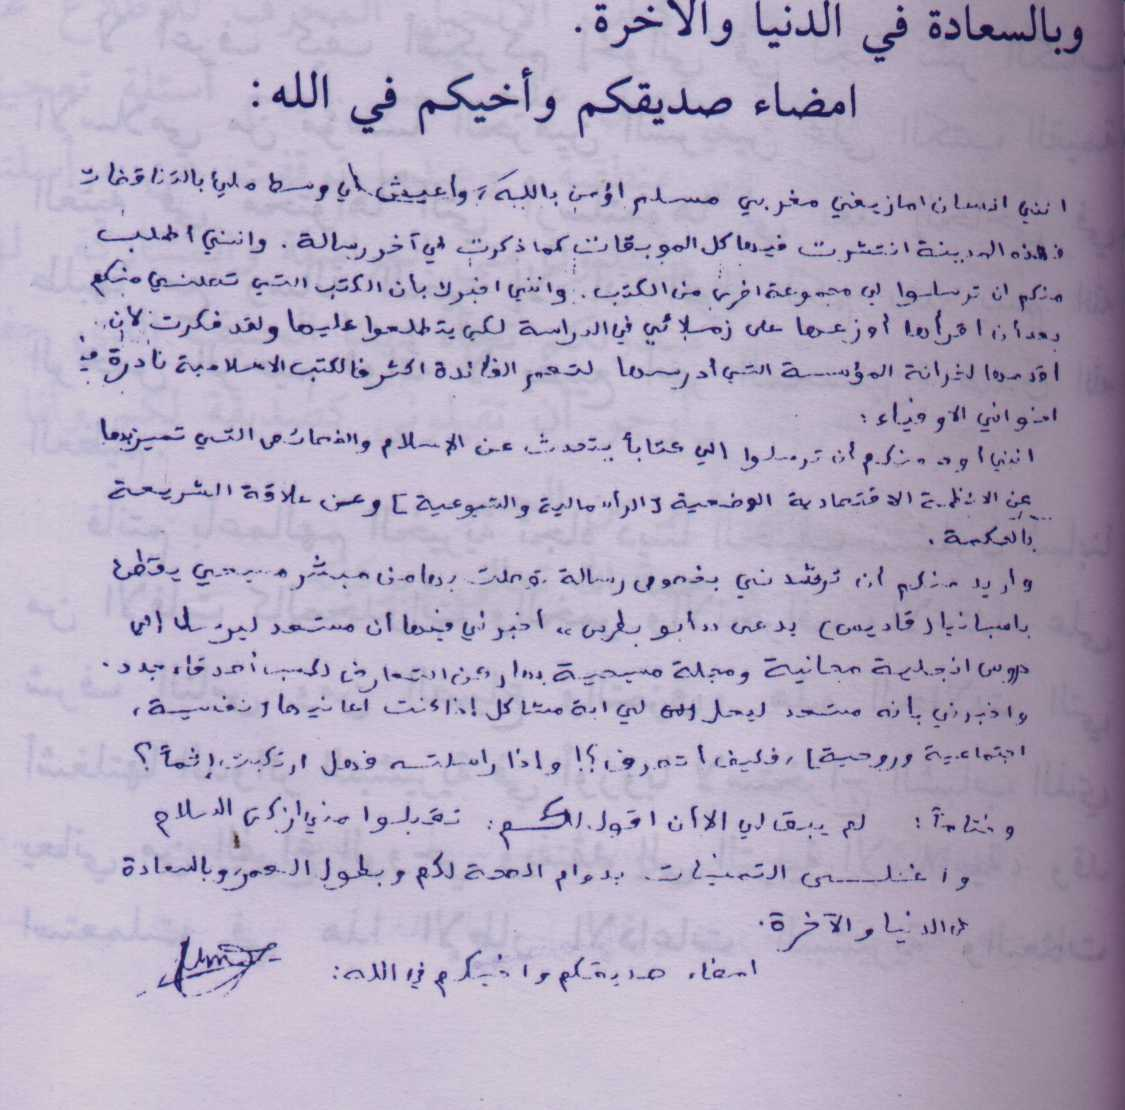 وبالسعادة في الدنيا والآخرة.
امضاء صديقكم وأخيكم في الله:
انني انسان امازيغي مغربي مسلم اؤمن بالله، واعيش في وسط مليء بالتناقضات
فهذه المدينة انتشرت فيها كل الموبقات كما ذكرت في آخر رسالة. وانني اطلب
منكم ان ترسلوا لي مجموعة اخرى من الكتب. وانني اخبركم بان الكتب التي تصلني منكم
بعد أن اقرأها أوزعها على زملائي في الدراسة لكي يتطلعوا عليها ولقد فكرت لأن
اقدمها لخزانة المؤسسة التي أدرس بها لتعم الفائدة اكثر فالكتب الاسلامية نادرة فيـ
اخواني الاوفياء:
انني اود منكم أن ترسلوا الي كتاباً يتحدث عن الاسلام والخصائص التي تميزه بها
عن الانظمة الاقتصادية الوضعية [الرأسمالية والشيوعية] وعن علاقة الشريعة
بالحكمة.
واريد منكم ان ترشدنني بخصوص رسالة توصلت بها من مبشر مسيحي يقطن
باسبانيا (قاديس) يدعى "أبو بطرس"، أخبرني فيها أن مستعد ليرسل الي
دروس انجيلية مجانية ومجلة مسيحية بها ركن التعارف لكسب أصدقاء جدد.
واخبرني بانه مستعد ليحل لي اية مشاكل إذا كنت اعانيها [نفسية،
اجتماعية وروحية]، فكيف أتصرف؟! واذا راسلته فهل ارتكبت إثماً؟
وختاماً: لم يبق لي الا أن اقول لكم: تقبلوا مني ازكى السلام
واغلى التمنيات بدوام الصحة لكم وبطول العمر وبالسعادة
في الدنيا والآخرة.
امضاء صديقكم واخيكم في الله: